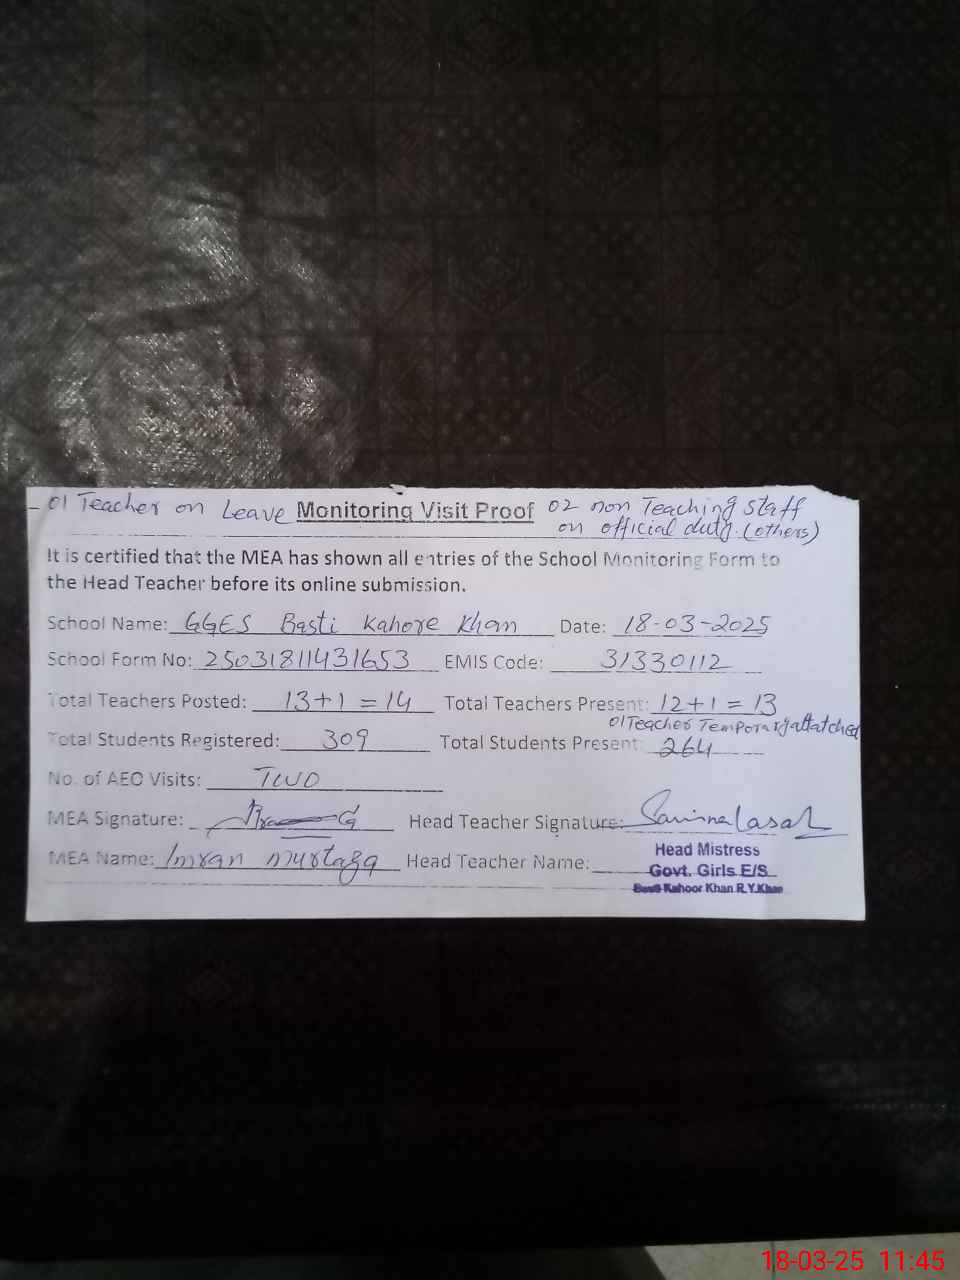 01 Teacher on Leave Monitoring Visit Proof 02 non Teaching staff
on official duty. (others)
It is certified that the MEA has shown all entries of the School Monitoring Form to
the Head Teacher before its online submission.
School Name: GGES Basti Kahore Khan Date: 18-03-2025
School Form No: 25031811431653 EMIS Code: 31330112
Total Teachers Posted: 13+1 = 14 Total Teachers Present: 12+1 = 13
01 Teacher Temporary attatched
Total Students Registered: 309 Total Students Present: 264
No. of AEO Visits: TWO
MEA Signature: Head Teacher Signature:
MEA Name: Imran murtaza Head Teacher Name:
Head Mistress
Govt. Girls E/S
Basti Kahoor Khan R.Y.Khan
18-03-25 11:45